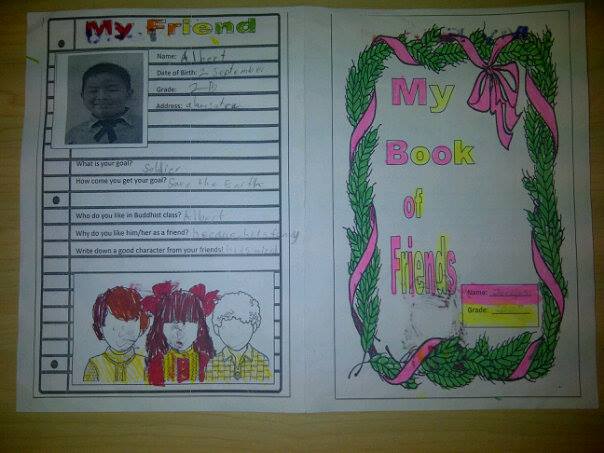 My Friend
Name: Albert
Date of Birth: 2 September
Grade:
Address:
What is your goal? Soldier
How come you get your goal? Save the Earth
Who do you like in Buddhist class? Albert
Why do you like him/her as a friend? because
Write down a good character from your friends!
My
Book
of
Friends
Name:
Grade: